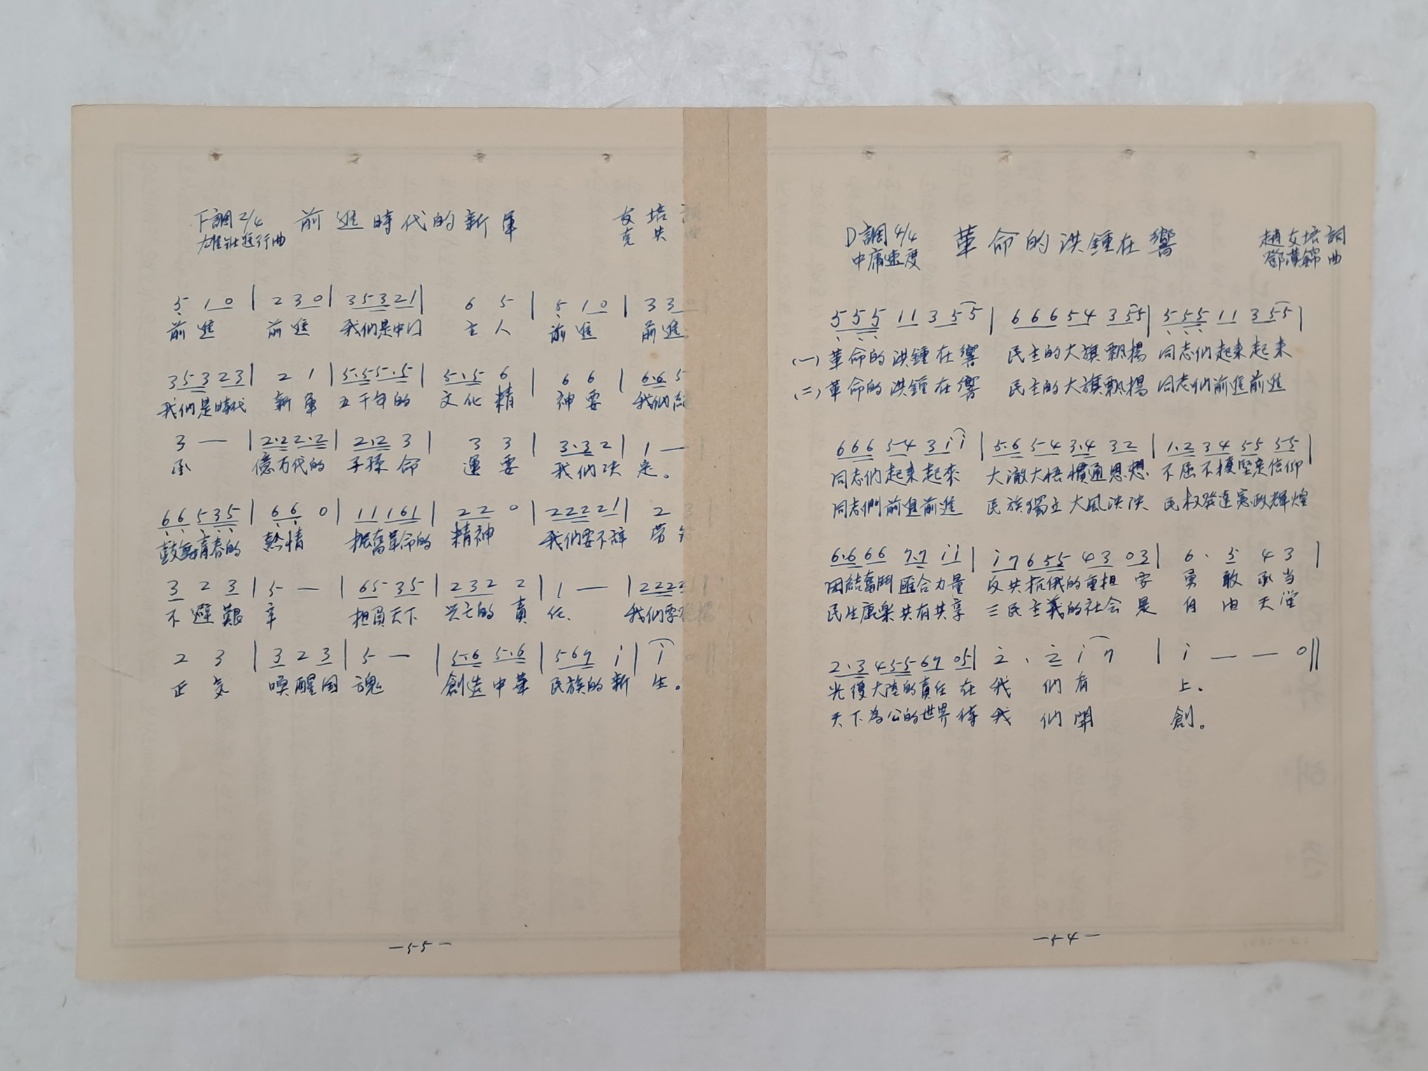 F調2/4 前進時代的新軍 友培詞
雄壯進行曲 克央
5 1 0 | 2 3 0 | 3 5 3 2 1 | 6 5 | 5 1 0 | 3 3
前進 前進 我们是中门 主人 前進 前進
3 5 3 2 3 | 2 1 | 5·5 5·5 | 5·5 6 | 6 6 | 6·6 5
我们是時代 新軍 五千年的 文化精 神要 我们
3 — | 2·2 2·2 | 2·2 3 | 3 3 | 3·3 2 | 1 —
承 億万代的 子孫命 運要 我们决 定。
6 6 5 3 5 | 6 6 0 | 1 1 1 6 1 | 2 2 0 | 2 2 2 2 1 | 2 3
鼓舞青春的 熱情 振奮革命的 精神 我们要不辞 勞
3 2 3 | 5 — | 6 5 3 5 | 2 3 2 2 | 1 — | 2 2 2 3
不避艱 辛 担負天下 兴亡的責 任、 我们要
2 3 | 3 2 3 | 5 — | 5·6 5·6 | 5 6 7 i | i 0 ||
正気 喚醒国 魂 創造中華 民族的新 生。
—55—
D調4/4 革命的洪鍾在響 趙友培詞
中庸速度 鄧漢錦曲
5 5 5 1 1 3 5 5 | 6 6 6 5 4 3 5 5 | 5 5 5 1 1 3 5 5 |
(一)革命的洪鍾在響 民主的大旗飘揚 同志们起来起来
(二)革命的洪鍾在響 民主的大旗飘揚 同志们前進前進
6 6 6 5 4 3 i i | 5·6 5 4 3·4 3 2 | 1·2 3 4 5 5 5 5 |
同志们起来起来 大澈大悟慣通思想 不屈不撓堅定信仰
同志們前進前進 民族獨立大風泱泱 民权發達憲政輝煌
6·6 6 6 7·7 i i | i 7 6 5 5 4 3 0 3 | 6 · 5 4 3 |
团結奮鬥匯合力量 反共抗俄的重担 要 勇敢承当
民生康樂共有共享 三民主義的社会是 自由天堂
2·3 4 5 5 6 7 0 5 | 2 · 2 i 7 | i — — 0 ||
光復大陸的責任在 我们肩 上。
天下為公的世界待 我們開 創。
—54—